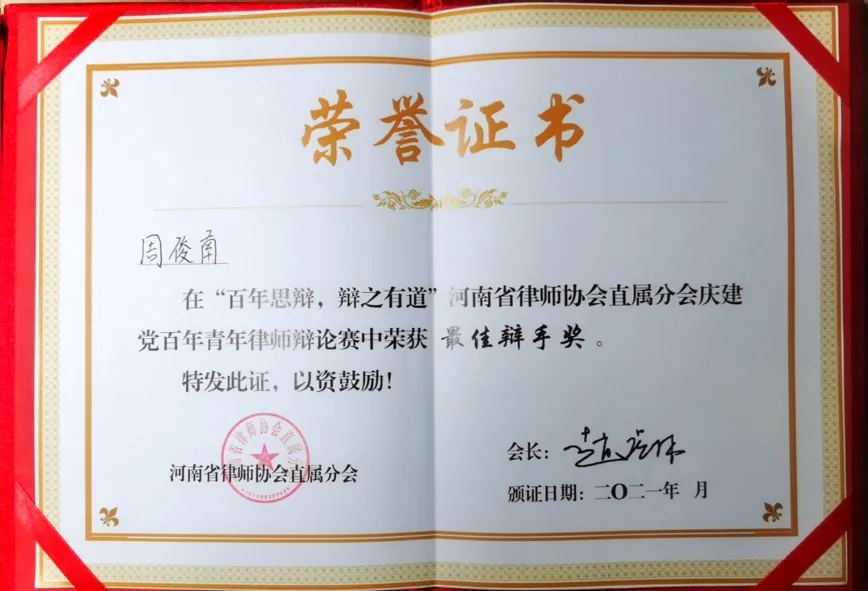 荣誉证书
周俊甫
在“百年思辩，辩之有道”河南省律师协会直属分会庆建
党百年青年律师辩论赛中荣获 最佳辩手奖。
特发此证，以资鼓励！
河南省律师协会直属分会
会长：
颁证日期：二〇二一年 月